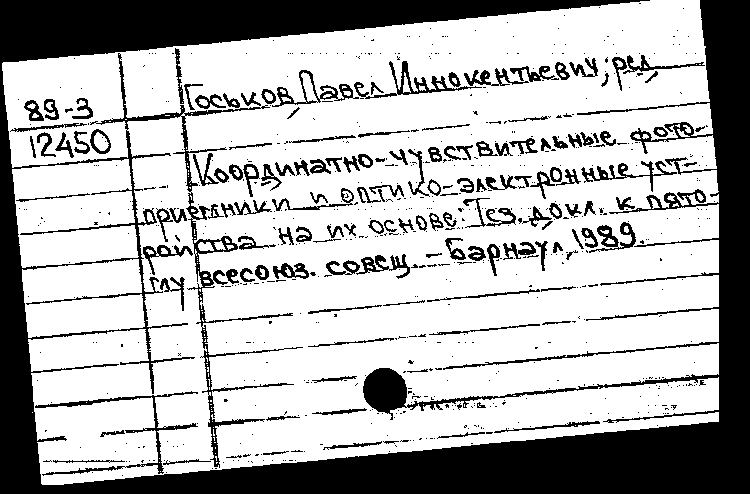 89-3
12450
Госьков, Павел Иннокентьевич; ред.
Координатно-чувствительные фото-
приемники и оптико-электронные уст-
ройства на их основе: Тез. докл. к пято-
му всесоюз. совещ. – Барнаул, 1989.